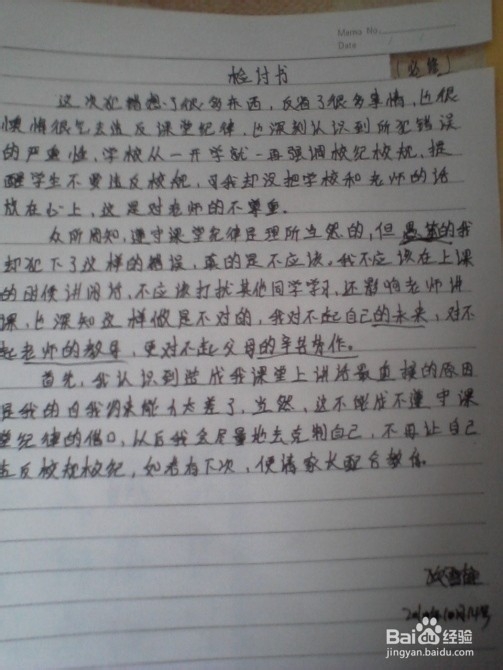 Memo No.
Date
检付书
这次犯错想了很多东西，反省了很多事情，也很
懊悔很气去违反课堂纪律，也深刻认识到所犯错误
的严重性，学校从一开学就一再强调校纪校规，提
醒学生不要违反校规，可我却没把学校和老师的话
放在心上，这是对老师的不尊重。
众所周知，遵守课堂纪律是理所当然的，但愚笨的我
却犯下了这样的错误，真的是不应该。我不应该在上课
的时候讲闲话，不应该打扰其他同学学习，还影响老师讲
课，也深知这样做是不对的，我对不起自己的未来，对不
起老师的教导，更对不起父母的辛苦劳作。
首先，我认识到造成我课堂上讲话最直接的原因
是我的自我约束能力太差了，当然，这不能成不遵守课
堂纪律的借口，从后我会尽量地去克制自己，不再让自己
违反校规校纪，如若有下次，便请家长配合教育。
Baidu百度经验
jingyan.baidu.com